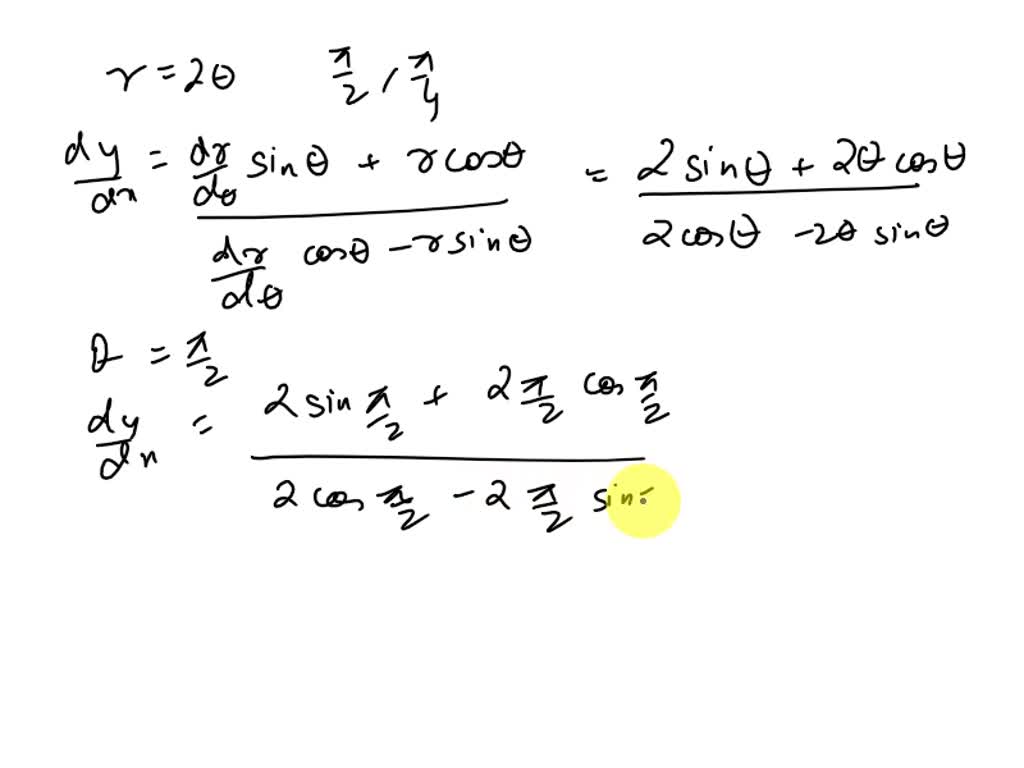 r = 2θ π/2 , π/4
dy/dx = (dr/dθ sinθ + r cosθ) / (dr/dθ cosθ - r sinθ) = (2 sinθ + 2θ cosθ) / (2 cosθ - 2θ sinθ)
θ = π/2
dy/dx = (2 sin π/2 + 2 π/2 cos π/2) / (2 cos π/2 - 2 π/2 sin